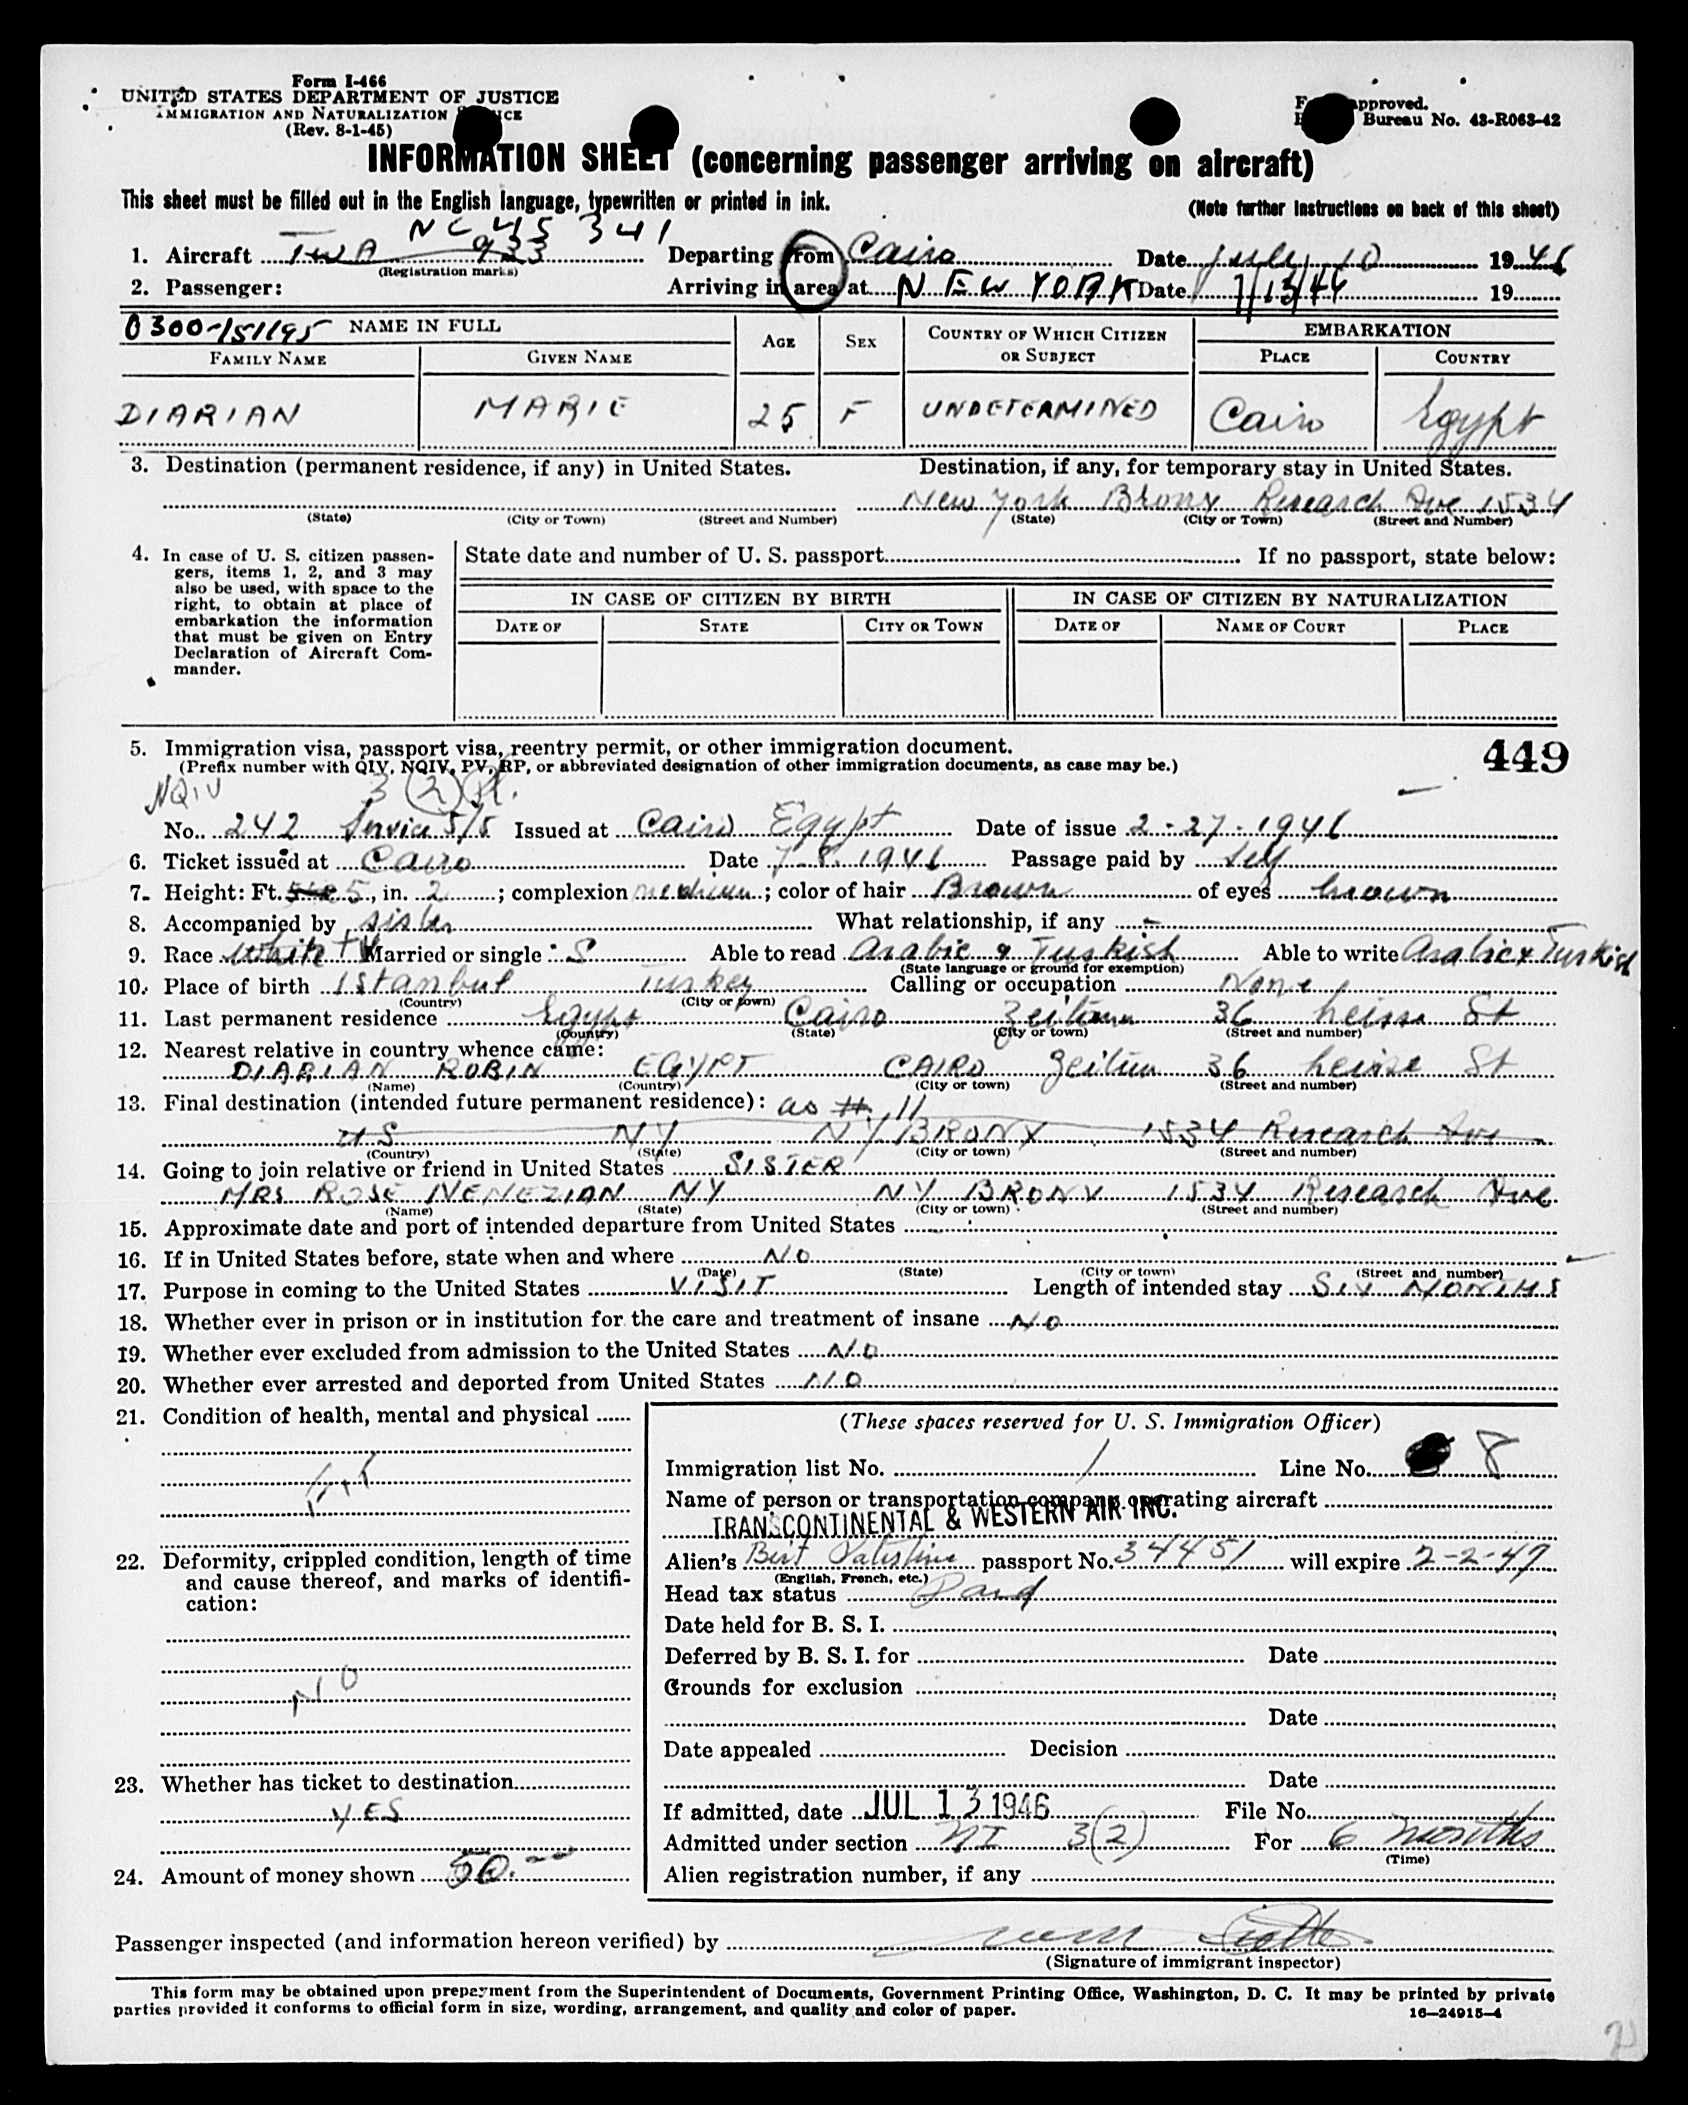 Form I-466
UNITED STATES DEPARTMENT OF JUSTICE
IMMIGRATION AND NATURALIZATION
(Rev. 8-1-45)
approved.
Bureau No. 43-R063-42
INFORMATION SHEET (concerning passenger arriving on aircraft)
This sheet must be filled out in the English language, typewritten or printed in ink.
(Note further instructions on back of this sheet)
NC 45 341
1. Aircraft TWA 933 Departing from Cairo Date July 10 1946
(Registration marks)
2. Passenger: Arriving in area at NEW YORK Date 7/13/46 19
0300-151195 NAME IN FULL AGE SEX COUNTRY OF WHICH CITIZEN OR SUBJECT EMBARKATION
FAMILY NAME GIVEN NAME PLACE COUNTRY
DIARIAN MARIE 25 F UNDETERMINED Cairo Egypt
3. Destination (permanent residence, if any) in United States. Destination, if any, for temporary stay in United States.
New York Bronx Research Ave 1534
(State) (City or Town) (Street and Number) (State) (City or Town) (Street and Number)
4. In case of U. S. citizen passen-
gers, items 1, 2, and 3 may
also be used, with space to the
right, to obtain at place of
embarkation the information
that must be given on Entry
Declaration of Aircraft Com-
mander.
State date and number of U. S. passport If no passport, state below:
IN CASE OF CITIZEN BY BIRTH IN CASE OF CITIZEN BY NATURALIZATION
DATE OF STATE CITY OR TOWN DATE OF NAME OF COURT PLACE
5. Immigration visa, passport visa, reentry permit, or other immigration document. 449
(Prefix number with QIV, NQIV, PV, RP, or abbreviated designation of other immigration documents, as case may be.)
NQIV 3 (2)
No. 242 Service 5/5 Issued at Cairo Egypt Date of issue 2-27-1946
6. Ticket issued at Cairo Date 7-8-1946 Passage paid by self
7. Height: Ft. 5, in. 2; complexion medium; color of hair Brown of eyes brown
8. Accompanied by sister What relationship, if any -
9. Race White Married or single S Able to read Arabic & Turkish Able to write Arabic & Turkish
(State language or ground for exemption)
10. Place of birth Istanbul Turkey Calling or occupation None
(Country) (City or town)
11. Last permanent residence Egypt Cairo Zeitoun 36 St
(Country) (State) (City or town) (Street and number)
12. Nearest relative in country whence came:
DIARIAN ROBIN EGYPT CAIRO Zeitun 36 St
(Name) (Country) (City or town) (Street and number)
13. Final destination (intended future permanent residence): as #. 11
US NY NY BRONX 1534 Research Ave
(Country) (State) (City or town) (Street and number)
14. Going to join relative or friend in United States SISTER
MRS ROSE NENEZIAN NY NY BRONX 1534 Research Ave.
(Name) (State) (City or town) (Street and number)
15. Approximate date and port of intended departure from United States
16. If in United States before, state when and where NO
(Date) (State) (City or town) (Street and number)
17. Purpose in coming to the United States VISIT Length of intended stay SIX MONTHS
18. Whether ever in prison or in institution for the care and treatment of insane NO
19. Whether ever excluded from admission to the United States NO
20. Whether ever arrested and deported from United States NO
21. Condition of health, mental and physical
22. Deformity, crippled condition, length of time
and cause thereof, and marks of identifi-
cation:
NO
23. Whether has ticket to destination
YES
24. Amount of money shown 50.--
(These spaces reserved for U. S. Immigration Officer)
Immigration list No. 1 Line No. 8
Name of person or transportation company operating aircraft
TRANSCONTINENTAL & WESTERN AIR INC.
Alien's Brit Palestine passport No. 34451 will expire 2-2-47
(English, French, etc.)
Head tax status Paid
Date held for B. S. I.
Deferred by B. S. I. for Date
Grounds for exclusion
Date
Date appealed Decision
Date
If admitted, date JUL 13 1946 File No.
Admitted under section NI 3(2) For 6 months
(Time)
Alien registration number, if any
Passenger inspected (and information hereon verified) by
(Signature of immigrant inspector)
This form may be obtained upon prepayment from the Superintendent of Documents, Government Printing Office, Washington, D. C. It may be printed by private
parties provided it conforms to official form in size, wording, arrangement, and quality and color of paper.
16—24915-4